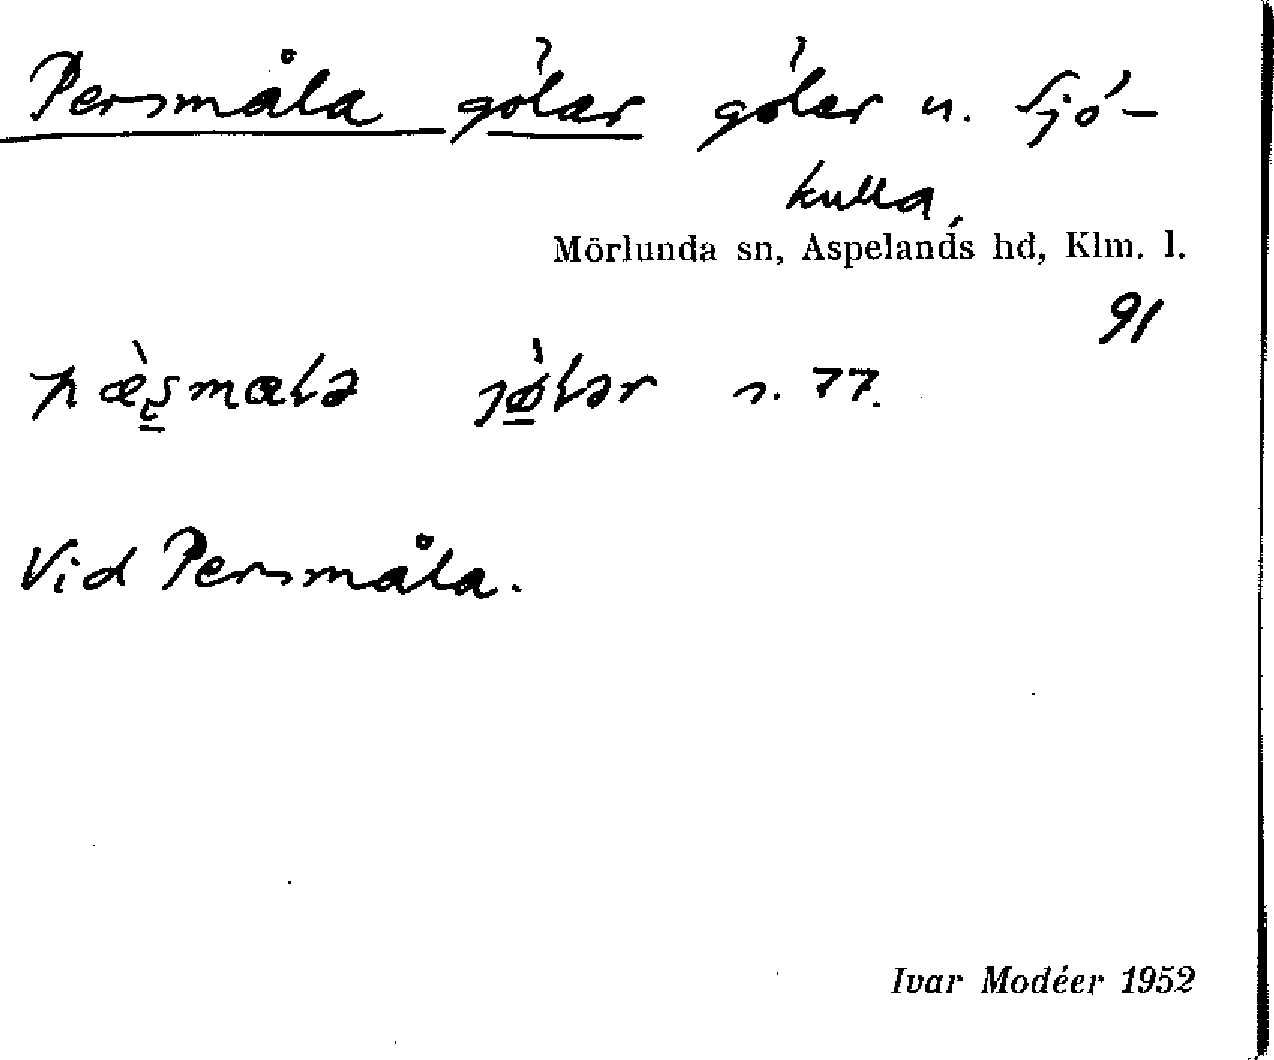 Persmåla gölar gölar u. Sjö-
kulla,
Mörlunda sn, Aspelands hd, Klm. l.
91
s. 77.
Vid Persmåla.
Ivar Modéer 1952